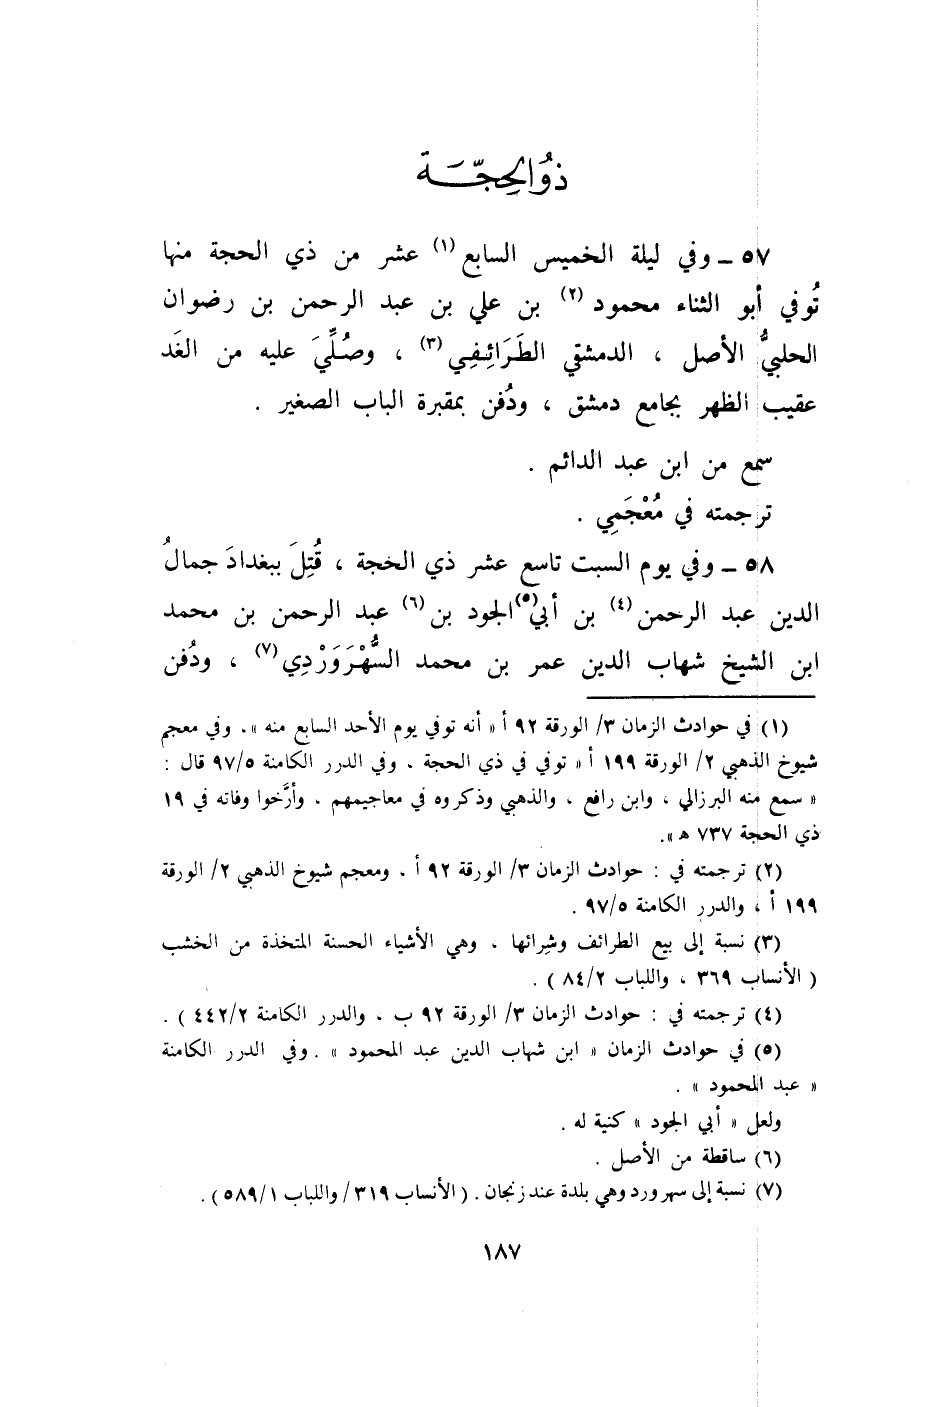 ذُو الحِجَّة
٥٧ ـ وفي ليلة الخميس السابع (١) عشر من ذي الحجة منها
تُوفي أبو الثناء محمود (٢) بن علي بن عبد الرحمن بن رضوان
الحلبيُّ الأصل ، الدمشقي الطَرَائِفِي (٣) ، وصُلِّيَ عليه من الغَد
عقيب الظهر بجامع دمشق ، ودُفن بمقبرة الباب الصغير .
سمع من ابن عبد الدائم .
ترجمته في مُعْجَمِي .
٥٨ ـ وفي يوم السبت تاسع عشر ذي الحجة ، قُتِلَ ببغدادَ جمالُ
الدين عبد الرحمن (٤) بن أبي (٥) الجود بن (٦) عبد الرحمن بن محمد
ابن الشيخ شهاب الدين عمر بن محمد السُّهْرَوَرْدِي (٧) ، ودُفن
(١) في حوادث الزمان ٣/ الورقة ٩٢ أ « أنه توفي يوم الأحد السابع منه » . وفي معجم
شيوخ الذهبي ٢/ الورقة ١٩٩ أ « توفي في ذي الحجة . وفي الدرر الكامنة ٩٧/٥ قال :
« سمع منه البرزالي ، وابن رافع ، والذهبي وذكروه في معاجيمهم . وأرَّخوا وفاته في ١٩
ذي الحجة ٧٣٧ هـ ».
(٢) ترجمته في : حوادث الزمان ٣/ الورقة ٩٢ أ . ومعجم شيوخ الذهبي ٢/ الورقة
١٩٩ أ ، والدرر الكامنة ٩٧/٥ .
(٣) نسبة إلى بيع الطرائف وشِرائها ، وهي الأشياء الحسنة المتخذة من الخشب
( الأنساب ٣٦٩ ، واللباب ٨٤/٢ ) .
(٤) ترجمته في : حوادث الزمان ٣/ الورقة ٩٢ ب ، والدرر الكامنة ٤٤٢/٢ ) .
(٥) في حوادث الزمان « ابن شهاب الدين عبد المحمود » . وفي الدرر الكامنة
« عبد المحمود » .
ولعل « أبي الجود » كنية له .
(٦) ساقطة من الأصل .
(٧) نسبة إلى سهرورد وهي بلدة عند زنجان . ( الأنساب ٣١٩/ واللباب ٥٨٩/١ ) .
١٨٧